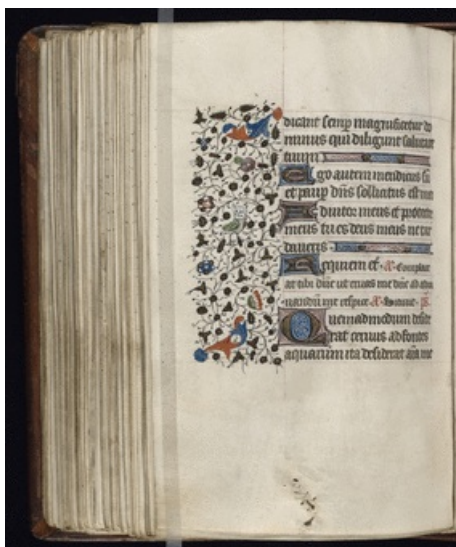 dicant semp magnificetur do
minus qui diligunt salutare
tuum
Ego autem mendicus su
et paup dns sollicitus est mei
Adiutor meus et protector
meus tu es deus meus ne tar
daueris
Requiem et. A. Complac
at tibi dne ut eruas me dne ad adiu
uandum me respice A. Sitiuit p̄.
Quemadmodum deside
rat ceruus ad fontes
aquarum ita desiderat aīa me